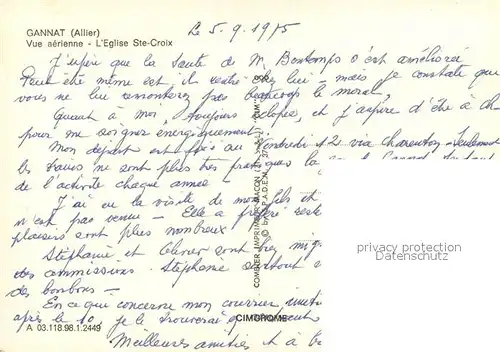 GANNAT (Allier)
Vue aérienne - L'Eglise Ste-Croix
Le 5.9.1975
J'espère que la santé de M. Bontemps s'est améliorée
Peut être même est il rentré chez lui - mais je constate que
vous ne lui remonterez pas beaucoup le moral,
Quant à moi, toujours clopes, et j'aspire d'être à Ch
pour me soigner énergiquement
Mon départ est fixé au Vendredi 12 via Charenton - Seulement
les trains ne sont plus très pratiques
de l'activité chaque année
J'ai eu la visite de mon fils et
n'est pas venue - Elle a préféré rest
plaisirs sont plus nombreux
Stéphanie et Olivier sont très mig
des commissions. Stéphanie surtout
des bonbons -
En ce qui concerne mon courrier, inut
après le 10, je le trouverai
Meilleures amitiés et à b
A 03.118.98.1.2449
CIMDROME
COMBIER IMPRIMEUR MACON
"CIM"
privacy protection
Datenschutz